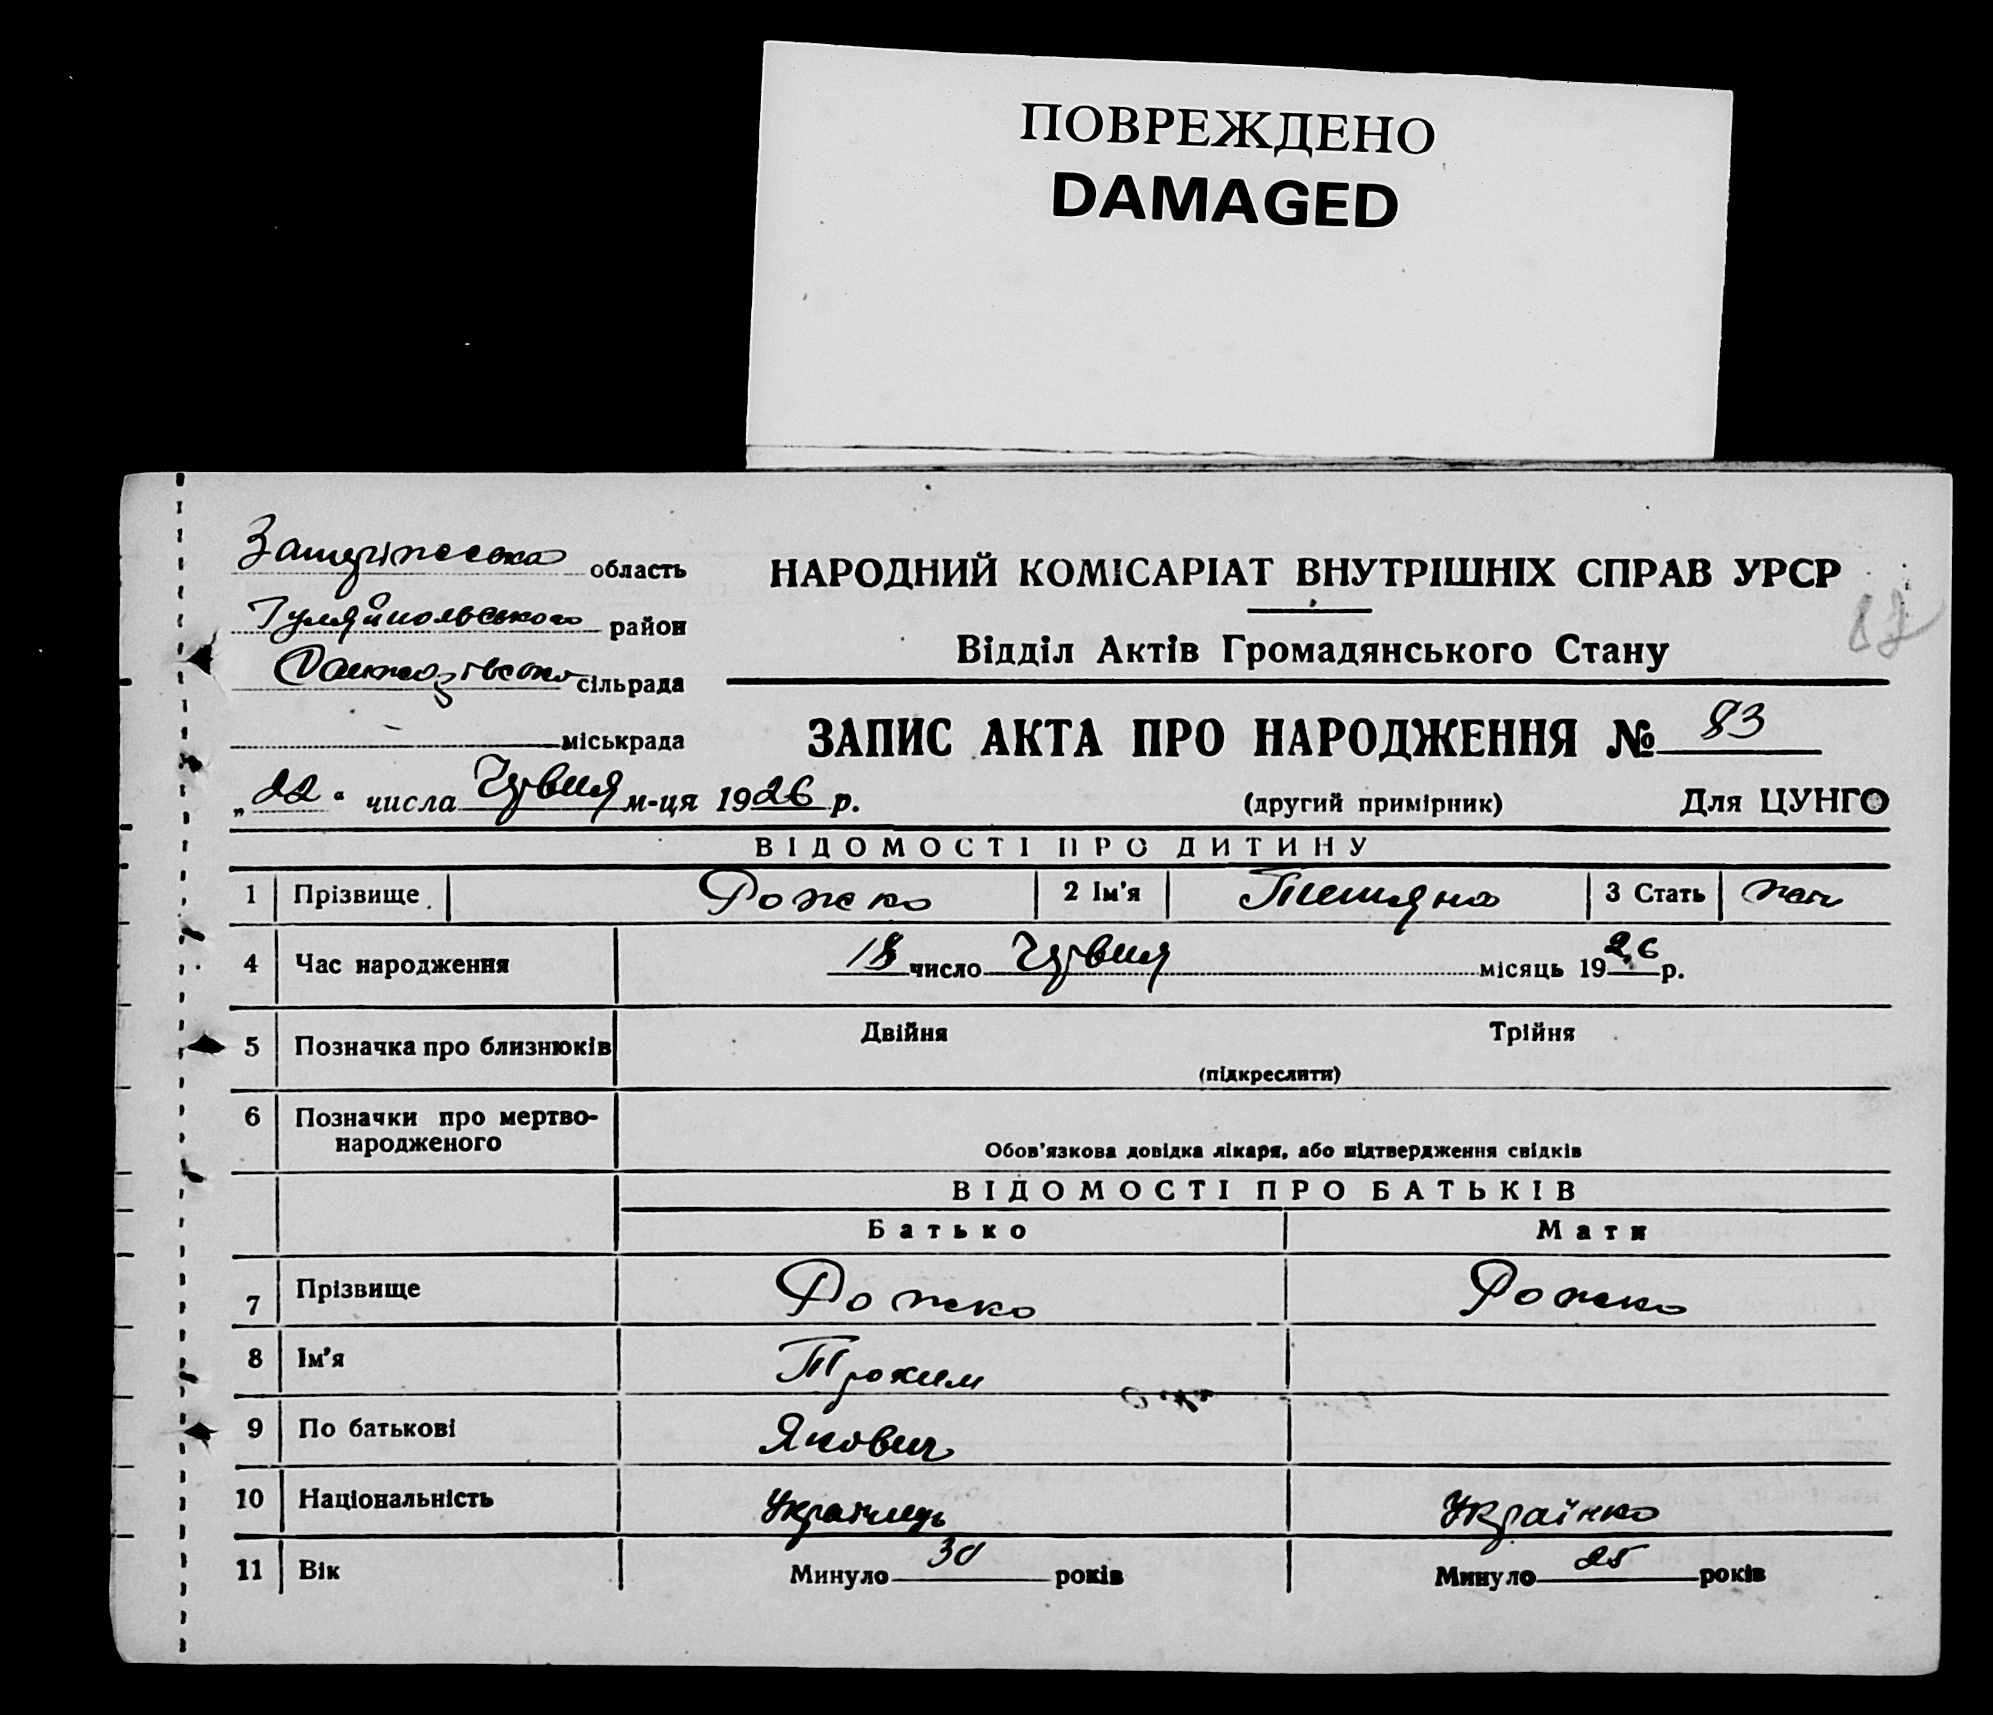 ПОВРЕЖДЕНО
DAMAGED
область
НАРОДНИЙ КОМІСАРІАТ ВНУТРІШНІХ СПРАВ УРСР
Гуляйпольського район
Відділ Актів Громадянського Стану
сільрада
міськрада
ЗАПИС АКТА ПРО НАРОДЖЕННЯ № 83
„22“ числа Червня м-ця 1926 р.
(другий примірник) Для ЦУНГО
ВІДОМОСТІ ПРО ДИТИНУ
1 Прізвище Рожко 2 Ім'я Тетяна 3 Стать
4 Час народження 18 число Червня місяць 1926 р.
5 Позначка про близнюків Двійня Трійня
(підкреслити)
6 Позначки про мертво-
народженого
Обов'язкова довідка лікаря, або підтвердження свідків
ВІДОМОСТІ ПРО БАТЬКІВ
Батько Мати
7 Прізвище Рожко Рожко
8 Ім'я Трохим
9 По батькові Якович
10 Національність Українець Українка
11 Вік Минуло 30 років Минуло 25 років